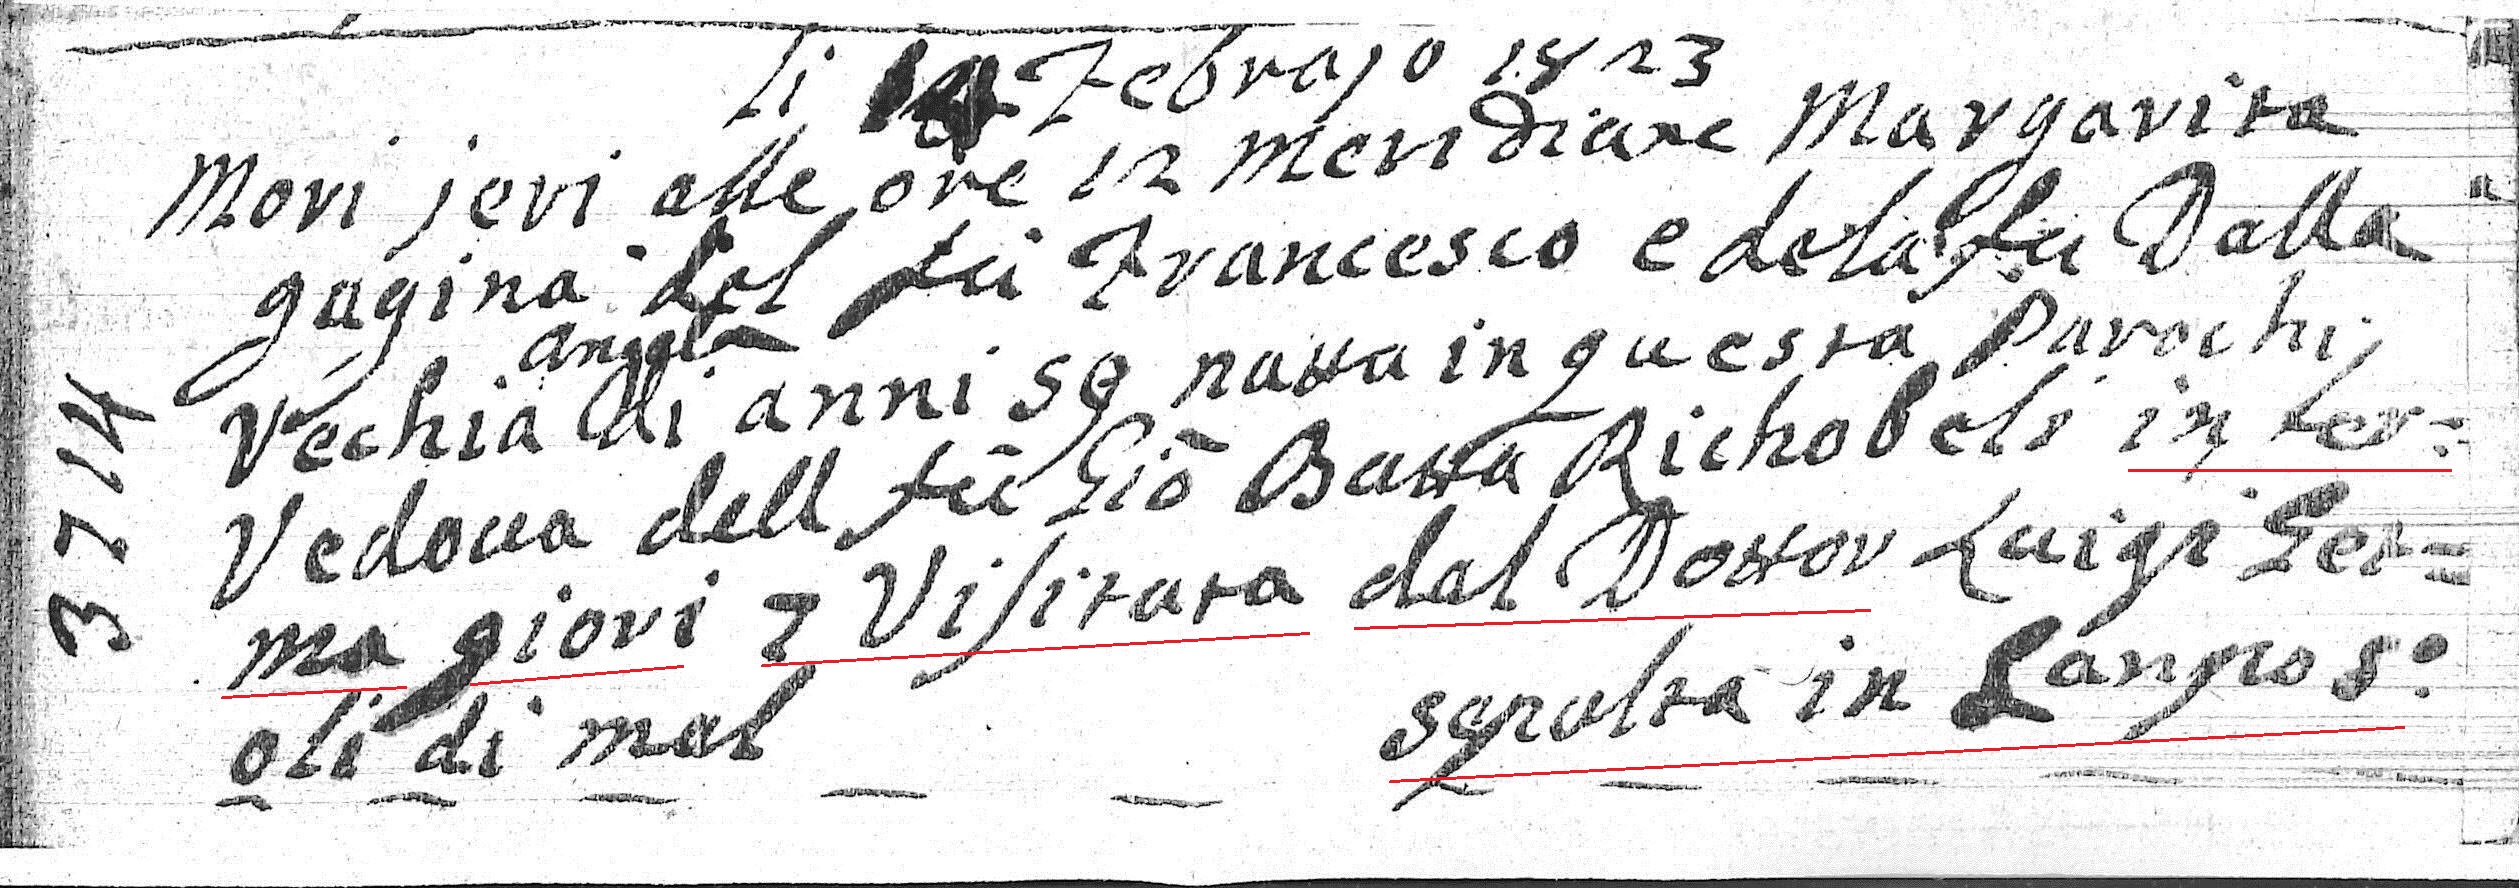 li Febrajo 1823
Mori jeri alle ore 12 meridiane Margarita
gagina del fù Francesco e dela fu Dalla
angela
Vechia di anni 59 natta in questa Parochi
Vedoua dell fù Giō Batta Richobeli in fer=
ma giori 7 Visitata dal Dottor Luigi Ger=
oli di mal sepulta in Canpos:
3714